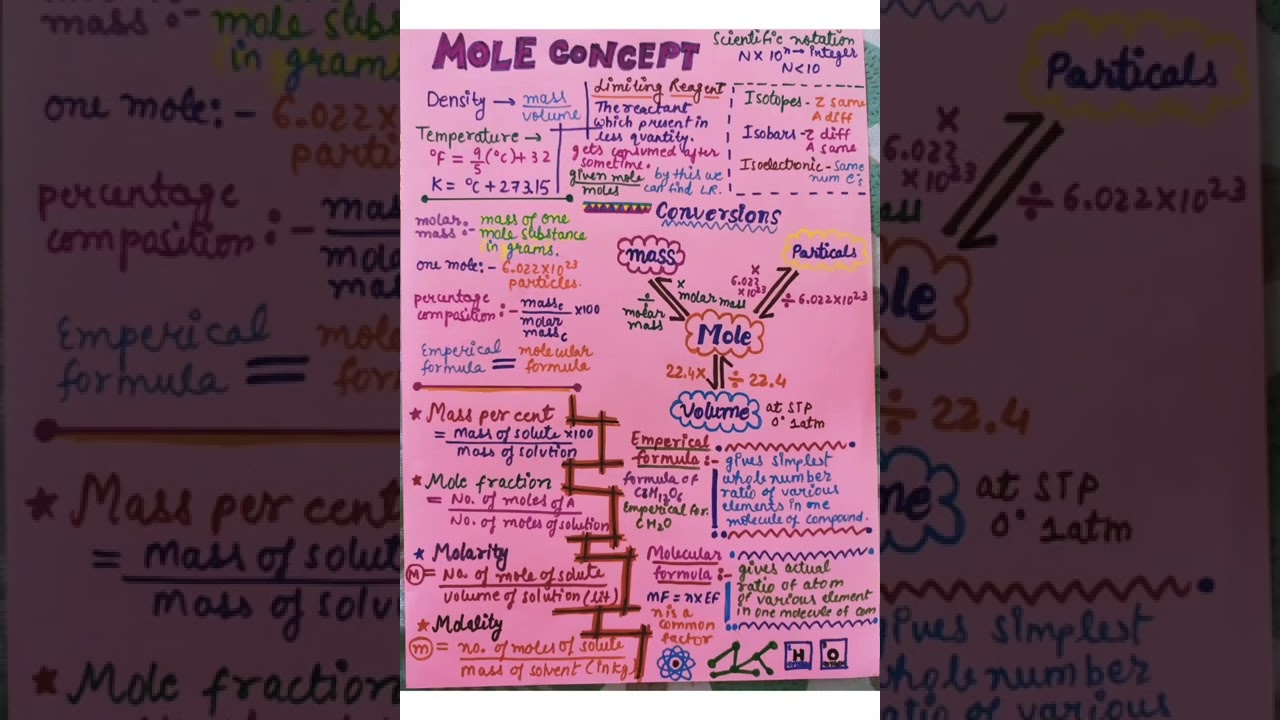 MOLE CONCEPT
Scientific notation
N x 10ⁿ → integer
N < 10
Density → mass / volume
Temperature →
°F = 9/5 (°C) + 32
K = °C + 273.15
Limiting Reagent
The reactant
which present in
less quantity.
gets consumed after
sometime.
given mole / moles
by this we
can find L.R.
Isotopes - Z same
A diff
Isobars - Z diff
A same
Isoelectronic - same
num e⁻s
molar mass :- mass of one
mole substance
in grams.
one mole :- 6.022x10²³
particles.
percentage
composition :- massₑ / molar mass꜀ x100
Emperical formula = molecular formula
Conversions
mass
Particals
÷ molar mass
x molar mass
x 6.022 x10²³
÷ 6.022x10²³
Mole
22.4x
÷ 22.4
Volume
at STP
0° 1atm
★ Mass per cent
= Mass of solute x100 / Mass of solution
★ Mole fraction
= No. of moles of A / No. of moles of solution
★ Molarity
M = No. of mole of solute / volume of solution (lit)
★ Molality
m = no. of moles of solute / mass of solvent (in kg)
Emperical
formula :-
gives simplest
whole number
ratio of various
elements in one
molecule of compound.
formula of
C6H12O6
emperical for.
CH2O
Molecular
formula :-
gives actual
ratio of atom
of various element
in one molecule of com
MF = n x EF
n is a
common
factor
H
O
mass :- mole sub
in grams
one mole :- 6.022
parti
percentage
composition :- mas
mola
mas
Emperical
formula = mo
for
★ Mass per cent
= Mass of solut
Mass of solv
★ Mole fraction
Particals
x
6.022
x10²³
÷ 6.022x10²³
ass
ole
÷ 22.4
me
at STP
0° 1atm
gives simplest
whole number
ratio of various